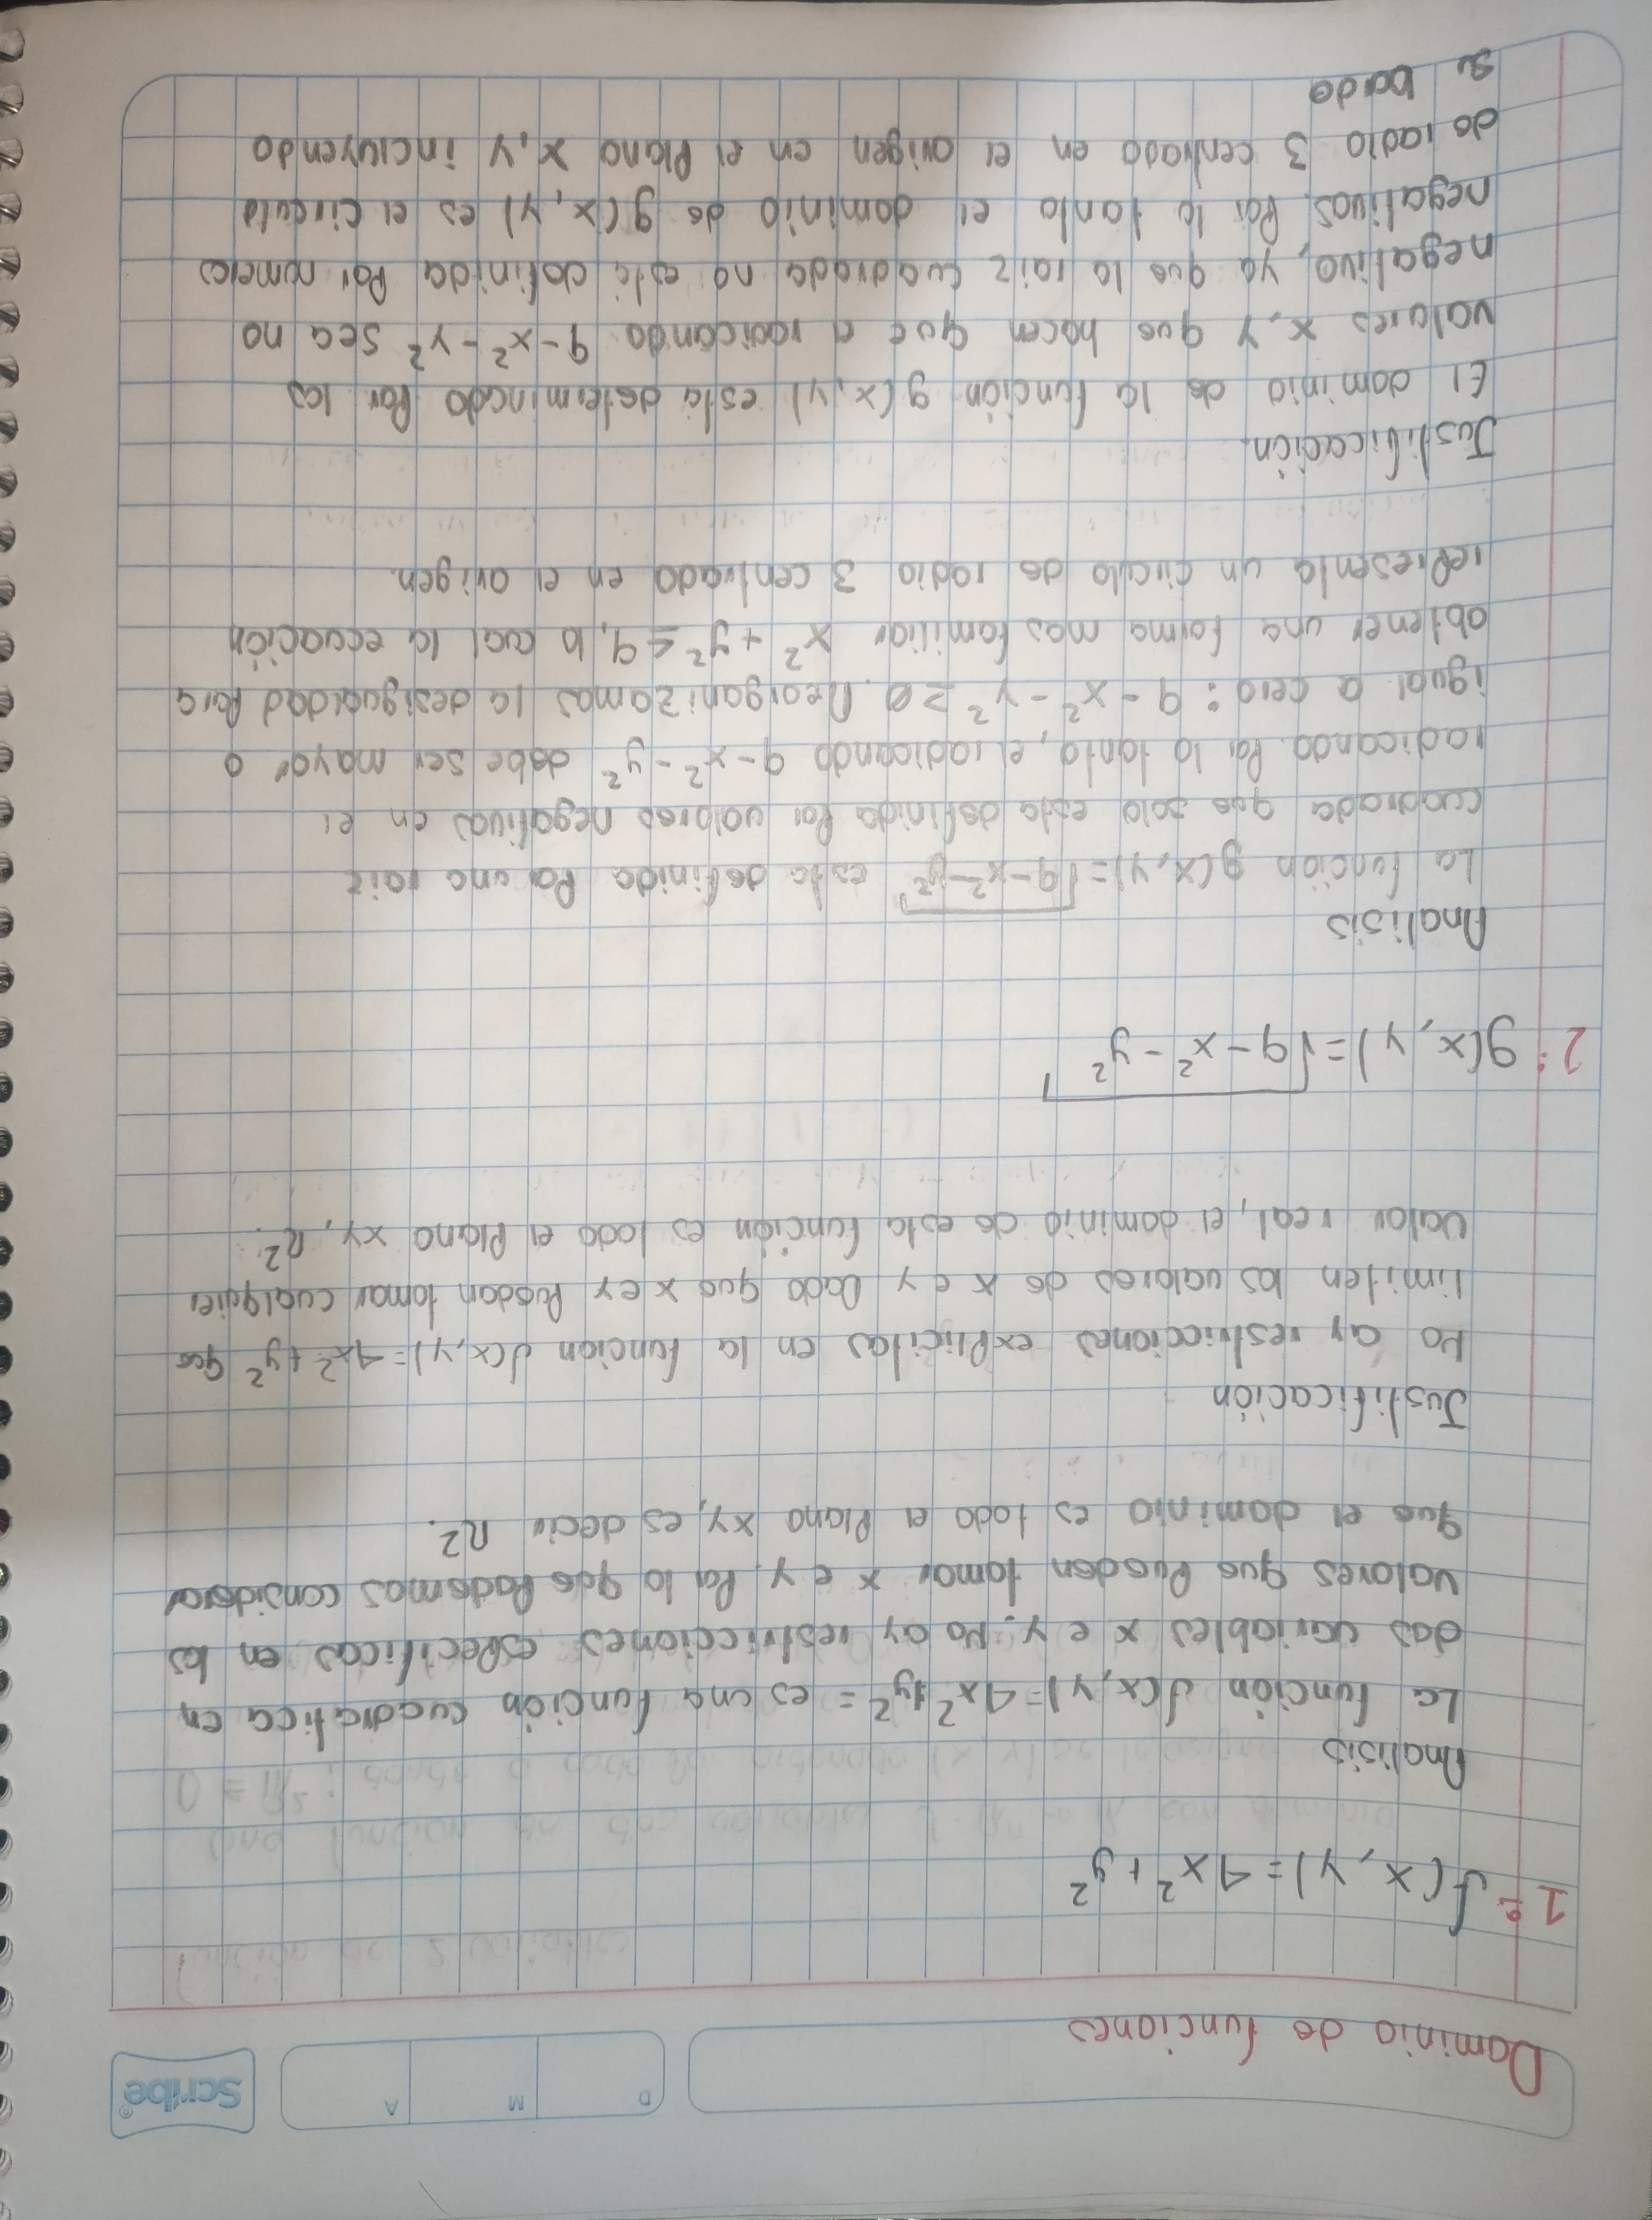 Dominio de funciones
D M A
Scribe®
1º f(x, y) = 4x² + y²
Analisis
La función f(x, y) = 4x² + y² = es una función cuadratica en
dos variables x e y. No ay restricciones especificas en los
valores que Pueden tomar x e y. Por lo que Podemos considerar
que el dominio es todo el Plano xy, es decir R².
Justificación
No ay restricciones explicitas en la funcion f(x, y) = 4x² + y² que
limiten los valores de x e y Dado que x e y Puedan tomar cualquier
valor real, el dominio de esta función es todo el Plano xy, R².
2º g(x, y) = √9 - x² - y²
Analisis
La función g(x, y) = √9 - x² - y² esta definida Por una raiz
cuadrada que solo esta definida Por valores negativos en el
radicando. Por lo tanto, el radicando 9 - x² - y² debe ser mayor o
igual a cero: 9 - x² - y² ≥ 0. Reorganizamos la desigualdad Para
obtener una forma mas familiar x² + y² ≤ 9, lo cual la ecuación
representa un circulo de radio 3 centrado en el origen.
Justificación.
El dominio de la función g(x, y) está determinado Por los
valores x, y que hacen que el radicando 9 - x² - y² sea no
negativo, ya que la raiz cuadrada no está definida Por numeros
negativos. Por lo tanto el dominio de g(x, y) es el circulo
de radio 3 centrado en el origen en el Plano x, y incluyendo
su borde